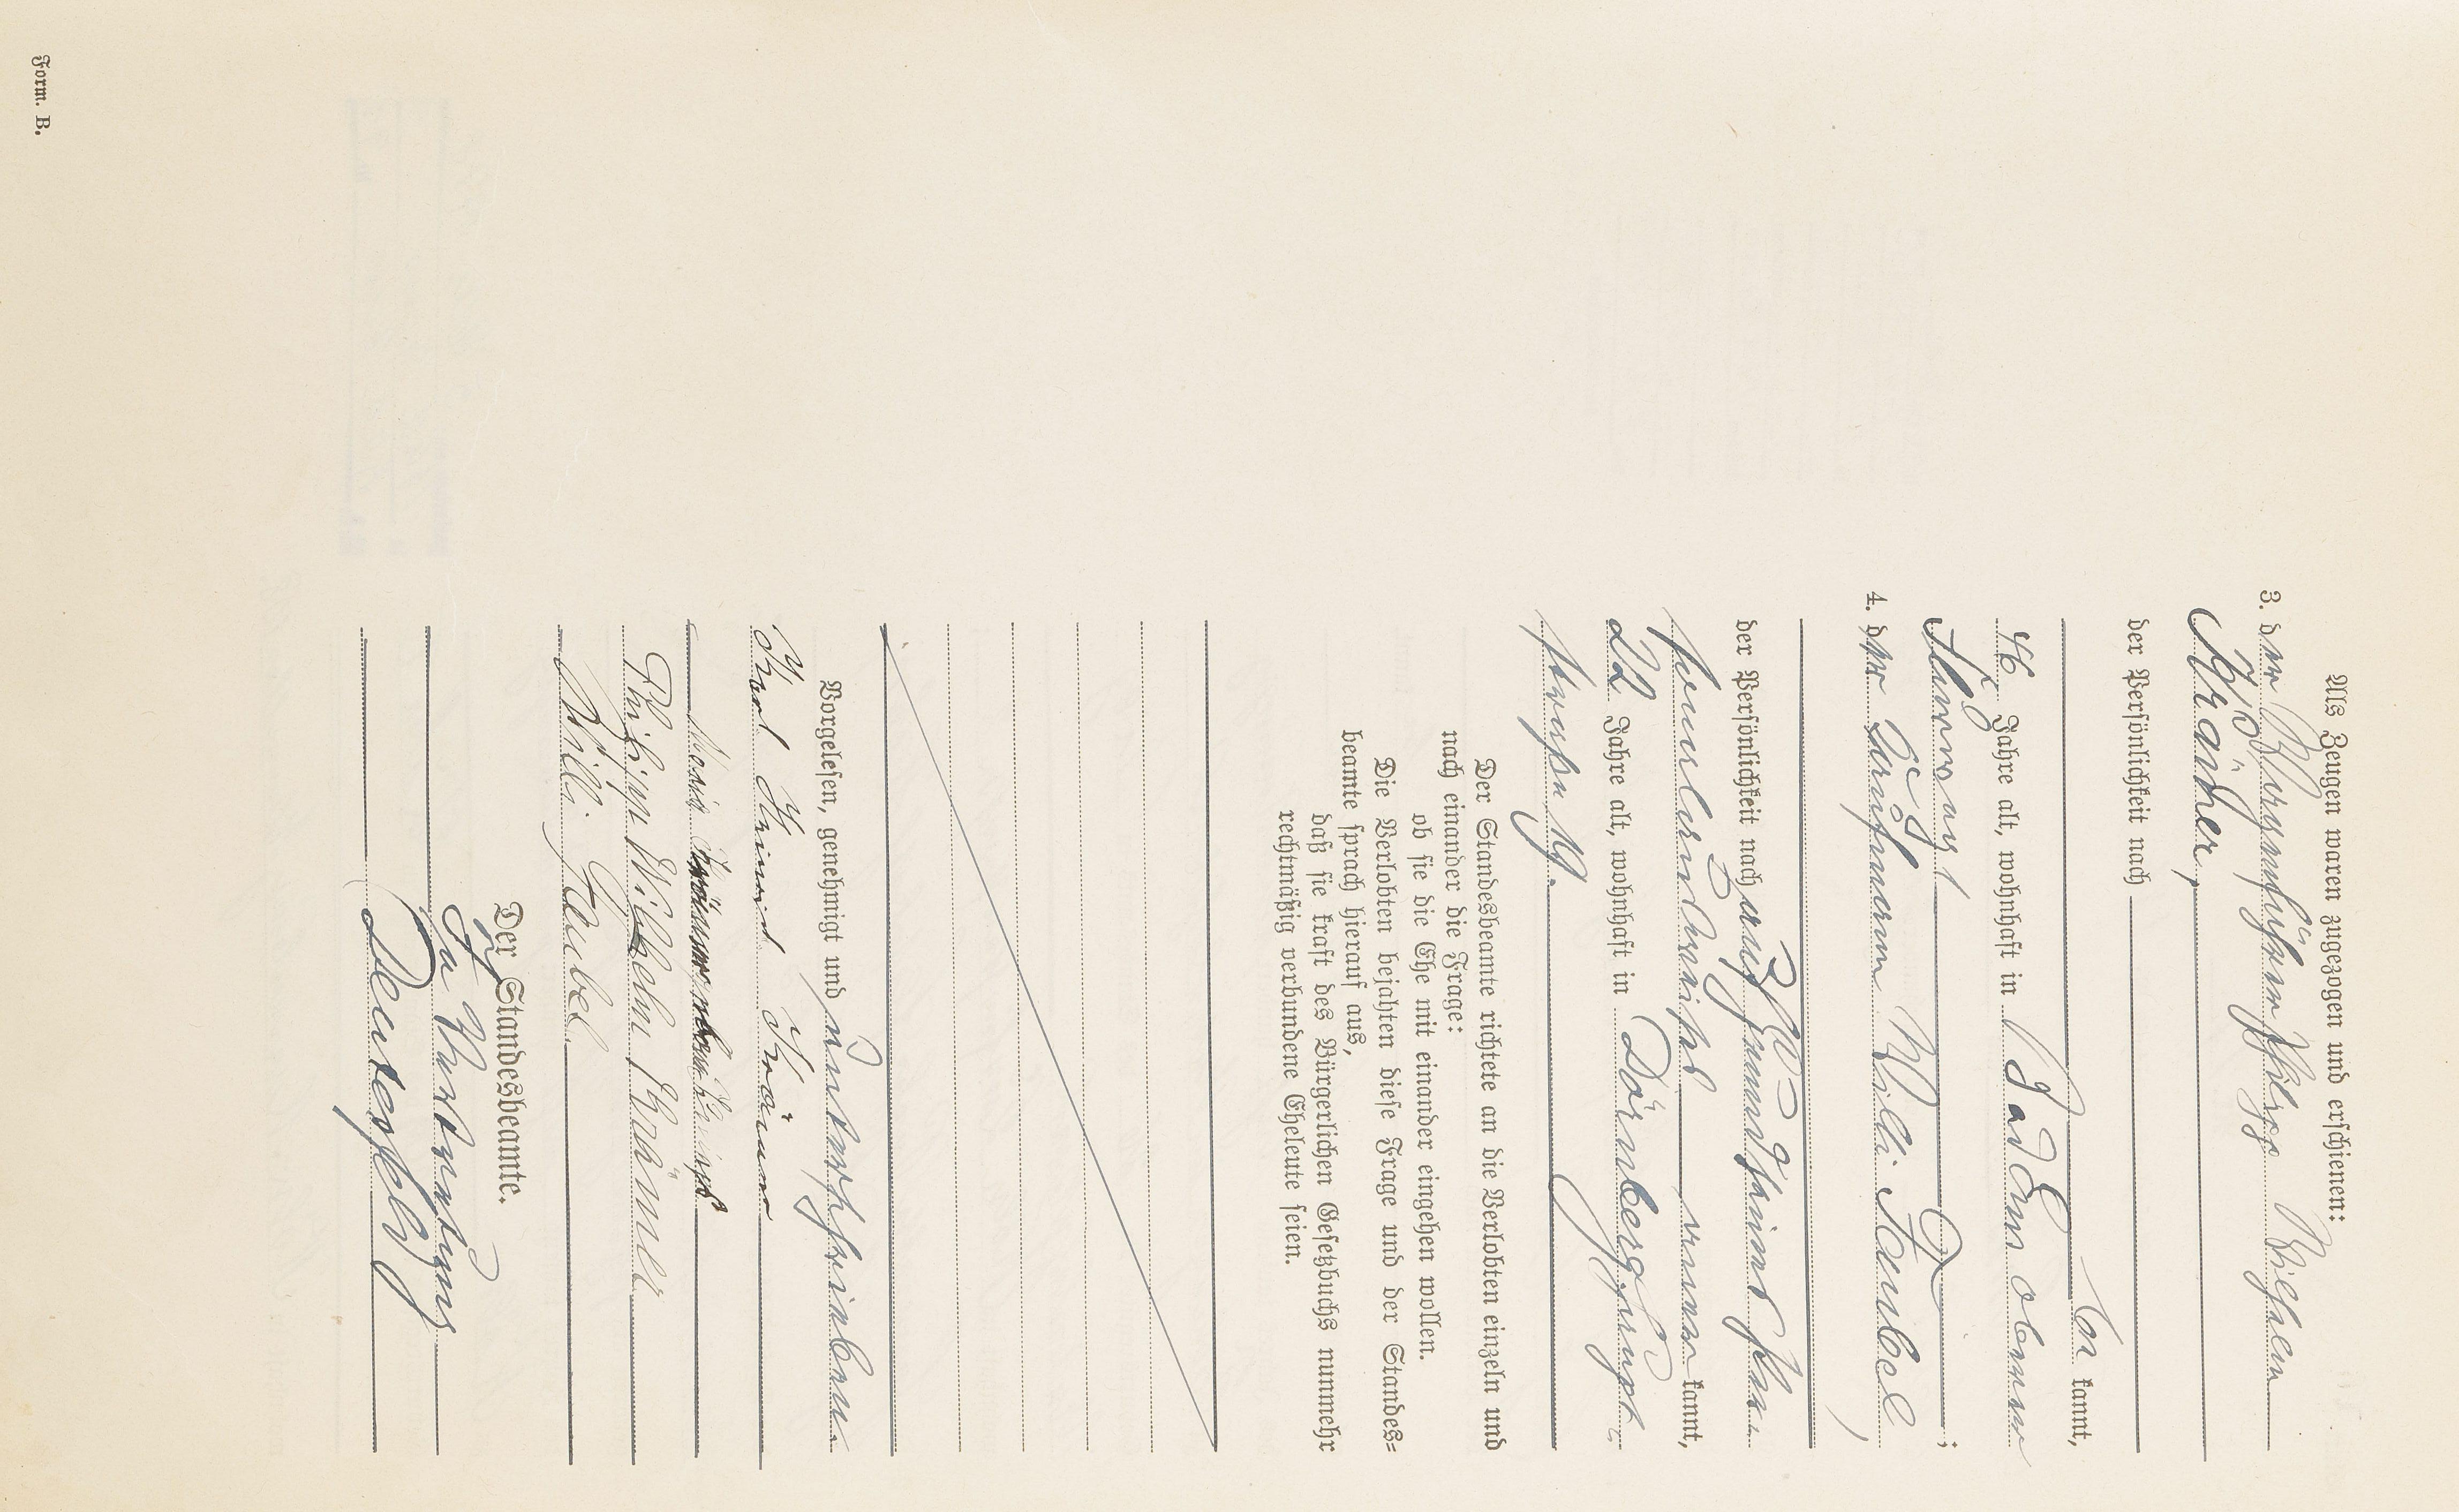 Als Zeugen waren zugezogen und erschienen:
3. der Bergmann Philipp Wilhelm
Krämer,
der Persönlichkeit nach
be kannt,
46 Jahre alt, wohnhaft in Bad Ems oberer
;
4. der Kaufmann Willi Faubel,
der Persönlichkeit nach auf Grund seines
kannt,
22 Jahre alt, wohnhaft in Dörnberg
straße 19.
Der Standesbeamte richtete an die Verlobten einzeln und
nach einander die Frage:
ob sie die Ehe mit einander eingehen wollen.
Die Verlobten bejahten diese Frage und der Standes=
beamte sprach hierauf aus,
daß sie kraft des Bürgerlichen Gesetzbuchs nunmehr
rechtmäßig verbundene Eheleute seien.
Vorgelesen, genehmigt und unterschrieben.
Karl Krämer
Maria
Philipp Wilhelm Krämer
Willi. Faubel.
Der Standesbeamte.
In Vertretung
Form. B.